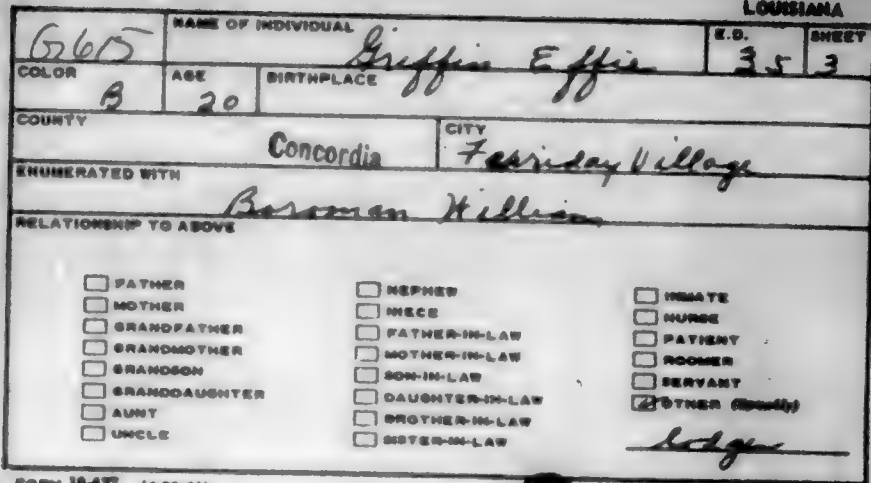 LOUISIANA
G615 NAME OF INDIVIDUAL Griffin Effie E.D. 35 SHEET 3
COLOR B AGE 20 BIRTHPLACE
COUNTY Concordia CITY Ferriday Village
ENUMERATED WITH
William
RELATIONSHIP TO ABOVE
FATHER
MOTHER
GRANDFATHER
GRANDMOTHER
GRANDSON
GRANDDAUGHTER
AUNT
UNCLE
NEPHEW
NIECE
FATHER-IN-LAW
MOTHER-IN-LAW
SON-IN-LAW
DAUGHTER-IN-LAW
BROTHER-IN-LAW
SISTER-IN-LAW
INMATE
NURSE
PATIENT
ROOMER
SERVANT
OTHER (Specify)
Lodger
FORM